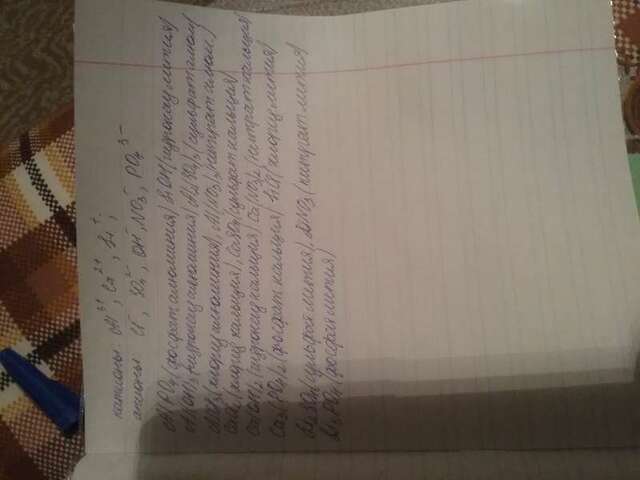 катионы: Al³⁺, Ca²⁺, Li⁺;
анионы Cl⁻, SO₄²⁻, OH⁻, NO₃⁻, PO₄³⁻
Al(PO₄ (фосфат алюминия) LiOH (гидроксид лития)
Al(OH)₃ гидроксид алюминия) Al₂(SO₄)₃ (сульфат алюм)
AlCl₃ (хлорид алюминия), Al(NO₃)₃ (нитрат алюм.)
CaCl₂ (хлорид кальция), CaSO₄ (сульфат кальция)
Ca(OH)₂ (гидроксид кальция) Ca(NO₃)₂ (нитрат кальция)
Ca₃(PO₄)₂ (фосфат кальция) LiCl (хлорид лития)
Li₂SO₄ (сульфат лития), LiNO₃ (нитрат лития)
Li₃PO₄ (фосфат лития)